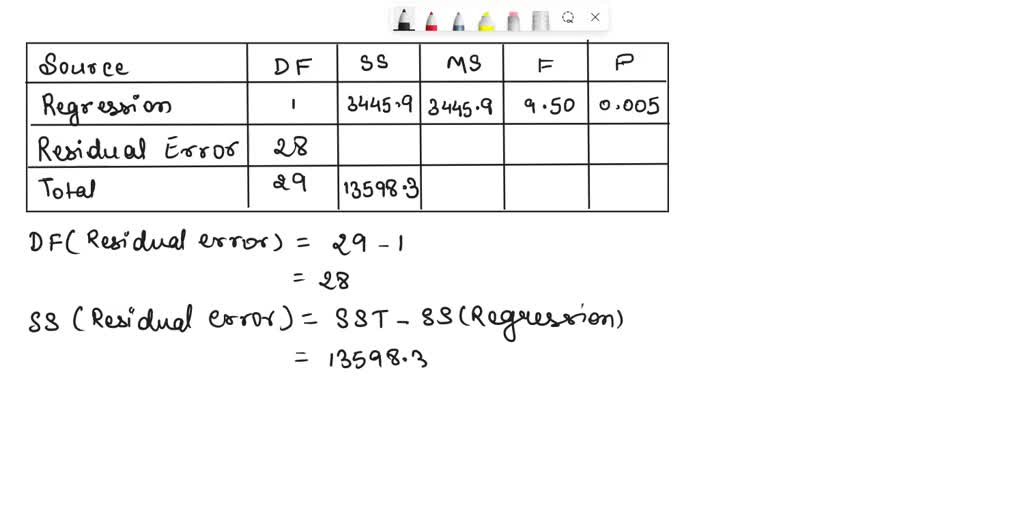 Source DF SS MS F P
Regression 1 3445.9 3445.9 9.50 0.005
Residual Error 28
Total 29 13598.3
DF(Residual error) = 29 - 1
= 28
SS (Residual error) = SST - SS(Regression)
= 13598.3